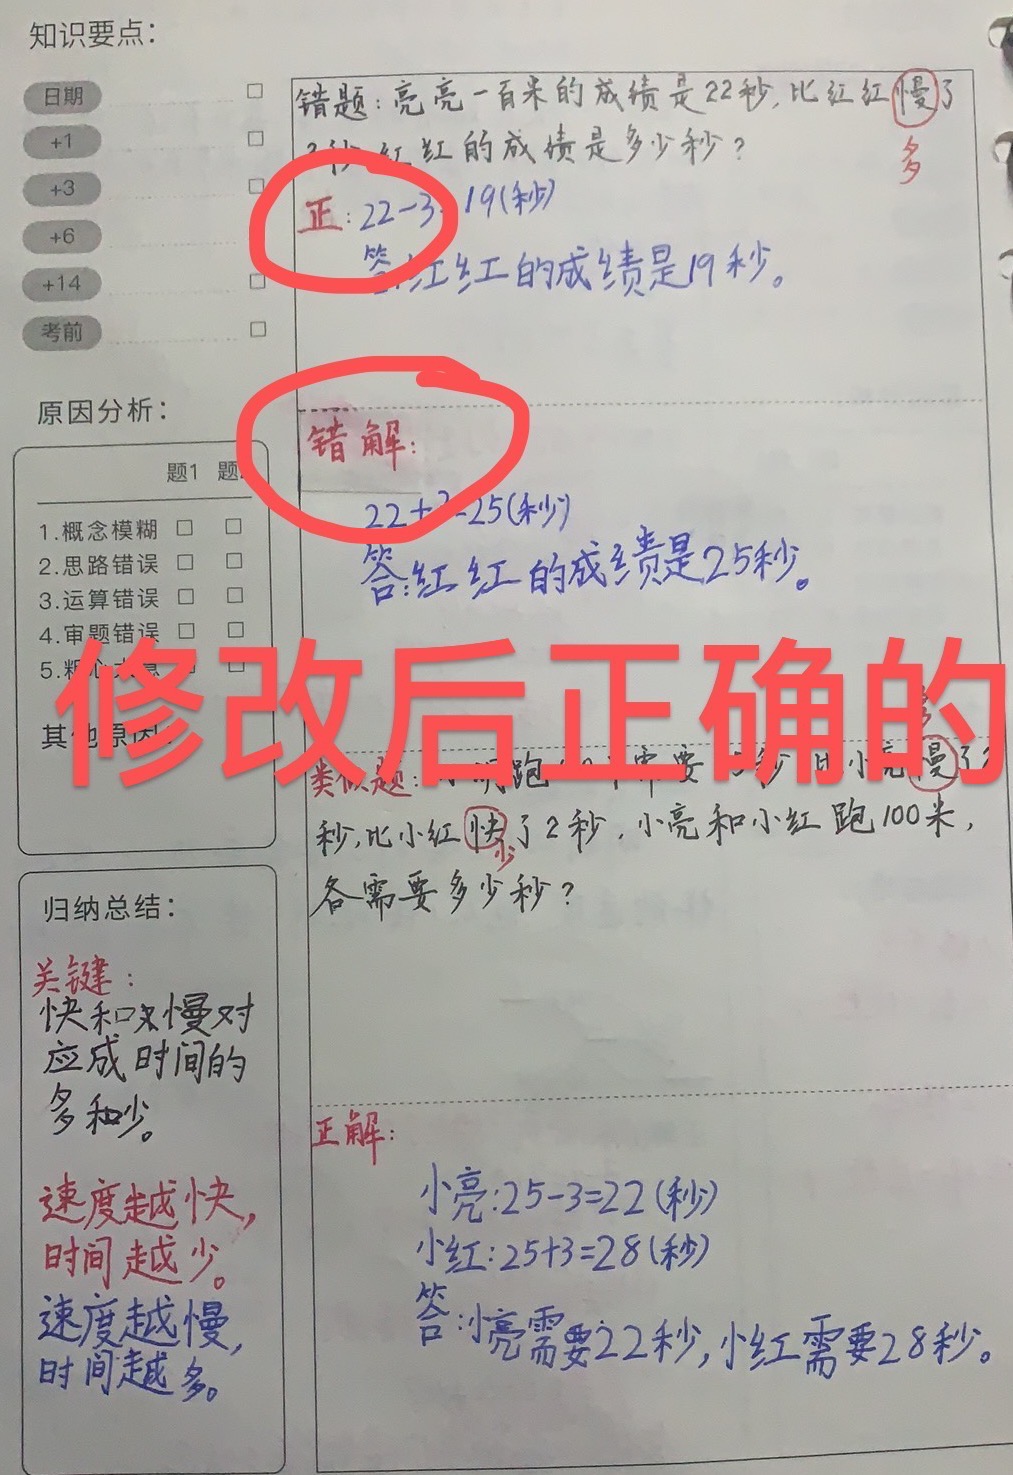 知识要点：
日期
+1
+3
+6
+14
考前
错题：亮亮一百米的成绩是22秒，比红红慢了
多
秒 红红的成绩是多少秒？
正：22-3 19(秒)
答：红红的成绩是19秒。
原因分析：
题1 题
1.概念模糊
2.思路错误
3.运算错误
4.审题错误
5.粗心大意
其他原因：
错解：
22+3=25(秒)
答：红红的成绩是25秒。
修改后正确的
多
类似题：小明跑 需要 秒 比小亮慢了2
秒，比小红快了2秒，小亮和小红跑100米，
少
各需要多少秒？
归纳总结：
关键：
快和慢对
应成时间的
多和少。
速度越快，
时间越少。
速度越慢，
时间越多。
正解：
小亮：25-3=22(秒)
小红：25+3=28(秒)
答：小亮需要22秒，小红需要28秒。